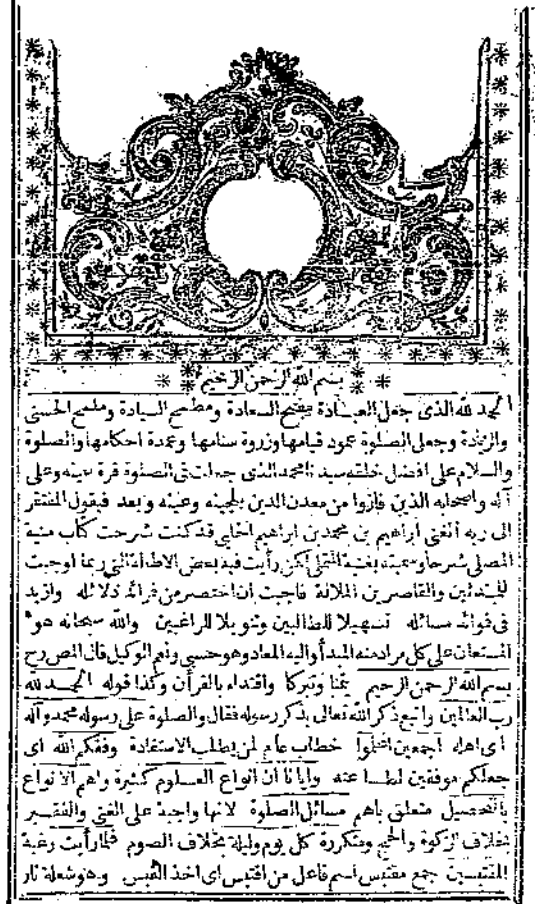 بسم الله الرحمن الرحيم
الحمد لله الذى جعل العبادة مفتح السعادة ومطمح السيادة وملمح الحسنى
والزيادة وجعل الصلوة عمود قيامها وزروة سنامها وعمدة احكامها والصلوة
والسلام على افضل خلقه سيدنا محمد الذى جعلت فى الصلوة قرة عينه وعلى
آله واصحابه الذين فازوا من معدن الدين بلجينه وعينه وبعد فيقول المفتقر
الى ربه الغنى ابراهيم بن محمد بن ابراهيم الحلبى قد كنت شرحت كتاب منية
المصلى شرحا وسميته بغنية المتملى لكن رأيت فيه بعض الاطالة التى ربما اوجبت
للمبتدئين والقاصرين الملالة فاحببت ان اختصر من فرائد دلائله وازيد
فى فوائد مسائله تسهيلا للطالبين وتنويلا للراغبين والله سبحانه هو
المستعان على كل مراد منه المبدأ واليه المعاد وهو حسبى ونعم الوكيل قال المص رح
بسم الله الرحمن الرحيم تيمنا وتبركا واقتداء بالقرأن وكذا قوله الحمد لله
رب العالمين واتبع ذكر الله تعالى بذكر رسوله فقال والصلوة على رسوله محمد وآله
اى اهله اجمعين اعلموا خطاب عام لمن يطلب الاستفادة وفقكم الله اى
جعلكم موفقين لطاعته وايانا ان انواع العلوم كثيرة واهم الانواع
بالتحصيل متعلق باهم مسائل الصلوة لانها واجبة على الغنى والفقير
بخلاف الزكوة والحج ومتكررة كل يوم وليلة بخلاف الصوم فلما رأيت رغبة
المقتبسين جمع مقتبس اسم فاعل من اقتبس اى اخذ القبس وهو شعلة نار